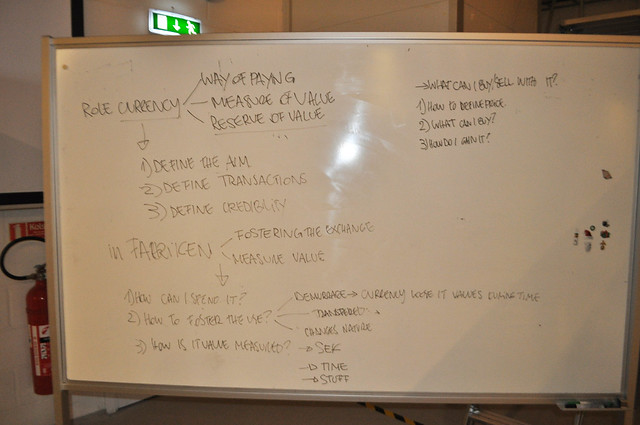 WAY OF PAYING
ROLE CURRENCY
MEASURE OF VALUE
RESERVE OF VALUE
1) DEFINE THE AIM
2) DEFINE TRANSACTIONS
3) DEFINE CREDIBLITY
in FABRIKEN
FOSTERING THE EXCHANGE
MEASURE VALUE
1) HOW CAN I SPEND IT?
2) HOW TO FOSTER THE USE?
DEMURRAGE → CURRENCY LOOSE IT VALUES DURING TIME
TRANSFERED
CHANGES NATURE
3) HOW IS IT VALUE MEASURED?
→ SEK
→ TIME
→ STUFF
→ WHAT CAN I BUY/SELL WITH IT?
1) HOW TO DEFINE PRICE
2) WHAT CAN I BUY?
3) HOW DO I GAIN IT?